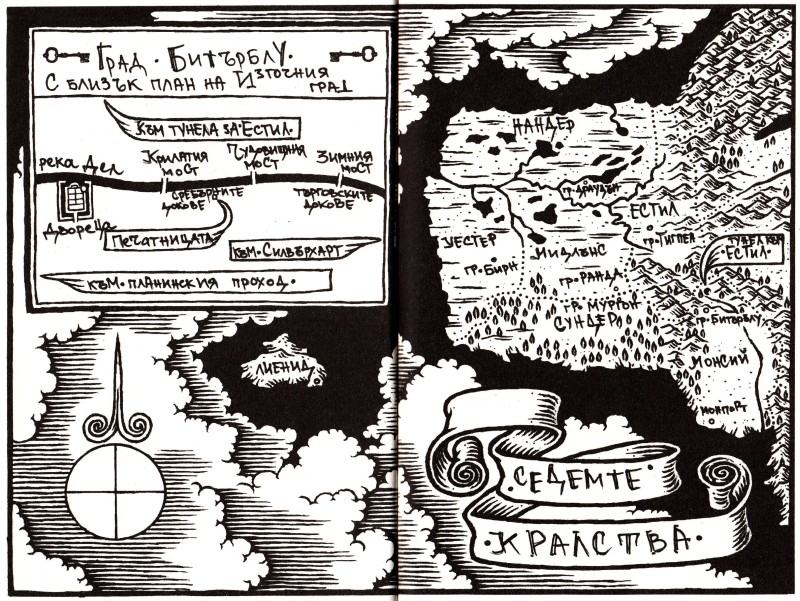 Град · Битърблу ·
С близък план на Източния
град
към тунела за Естил.
река Дел
Крилатия
мост
Чудовищния
мост
Зимния
мост
Сребърните
докове
Търговските
докове
Двореца
Печатницата
към Силвърхарт
към планинския проход.
Нандер
гр. Драудън
Естил
гр. Гигпен
Тунел към
Естил.
Уестер
гр. Бирн
Мидлънс
гр. Ранда
гр. Мургън
Сундер
гр. Битърблу
Монсий
Монпорт
Лиенид
· Седемте ·
· Кралства ·